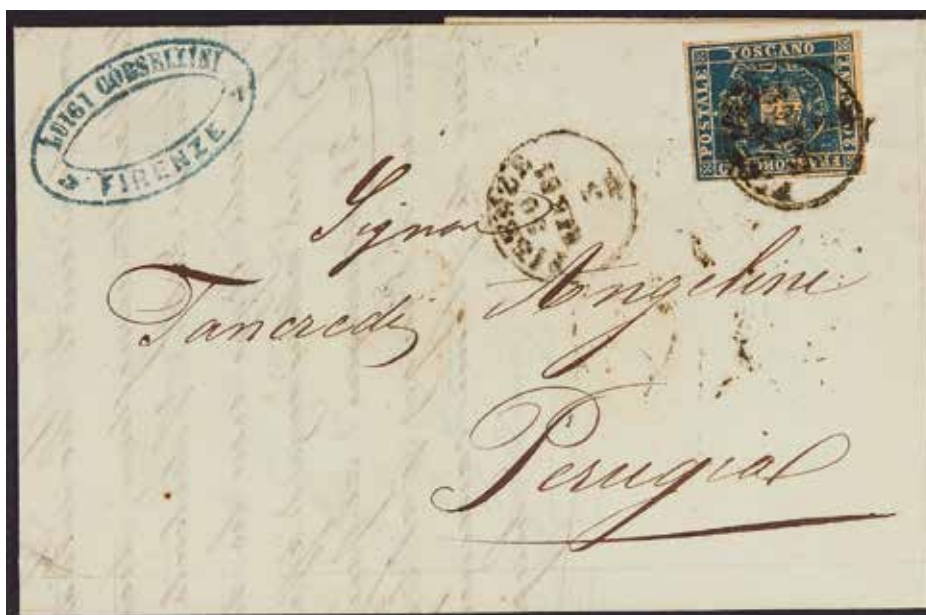 LUIGI CORSELLINI
FIRENZE
FRANCOBOLLO
POSTALE
TOSCANO
FIRENZE
Signor
Tancredi Angelini
Perugia